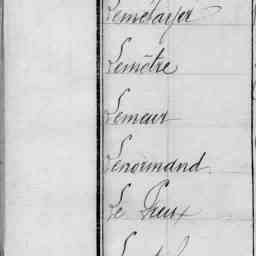 Lemétayer
Lemêtre
Lemeur
Lenormand
Le Preux